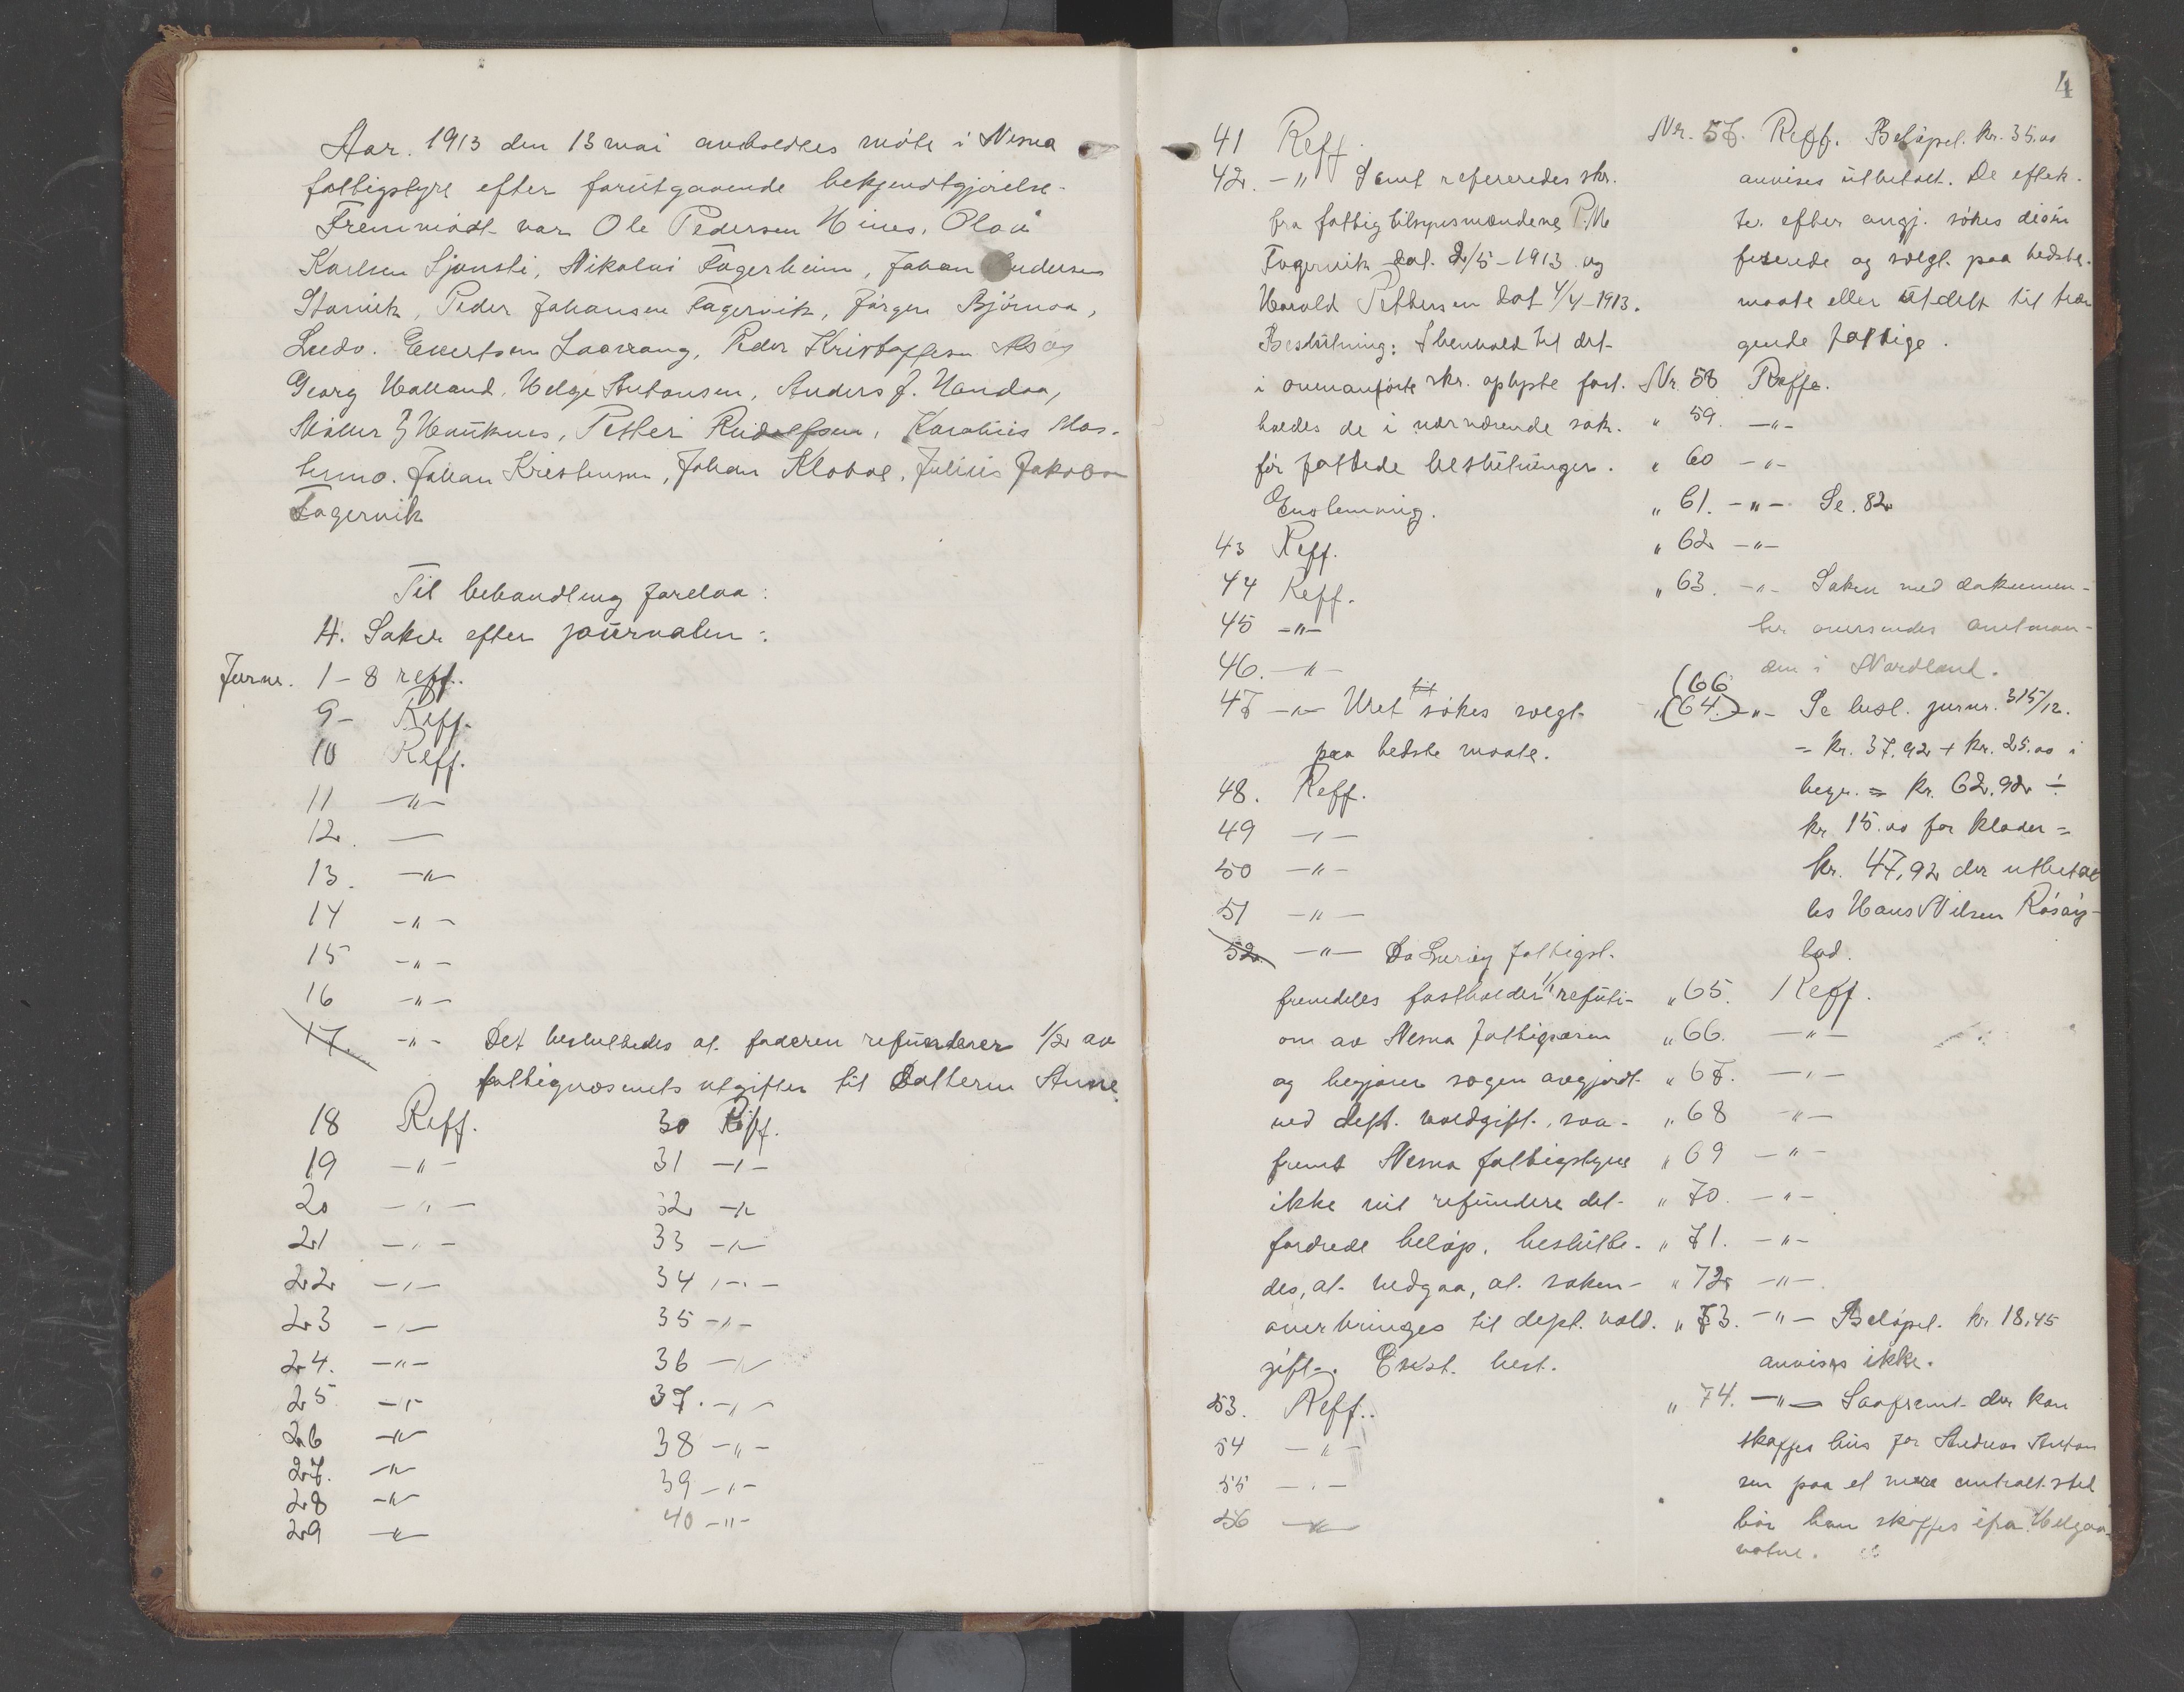 Aar. 1913 den 13 mai avholdtes möte i Nesna
fattigstyre efter forutgaaende bekjendtgjörelse.
Fremmödt var Ole Pedersen Hines, Olai
Karlsen Sjonsti, Nikolai Fagerheim, Johan Andersen
Storvik, Peder Johansen Fagervik, Jörgen Björnaa,
Ludv. Evertsen Laavang, Peder Kristoffersen
Georg Halland, Helge Antonsen, Anders J. Handaa,
Hauknes, Petter Rudolfsen, Karolius Mos-
hmo. Johan Kristensen, Johan Klobol, Julius Jakobsen
Fagervik
Til behandling forelaa:
A. Saker efter journalen:
Jurnr. 1-8 reff.
9- Reff.
10 Reff.
11 -"-
12. —
13. -"-
14 -"-
15 -"-
16 -"-
17. -"- Det besluttedes at faderen refunderer 1/2 av
fattigvæsenets utgifter til Datteren Anne.
18 Reff. 30 Reff.
19 -"- 31 -"-
20 -"- 32 -"-
21 -"- 33 -"-
22 -"- 34 -"-
23 -"- 35 -"-
24. -"- 36 -"-
25 -"- 37. -"-
26 -"- 38 -"-
27. -"- 39 -"-
28 -"- 40 -"-
29 -"-
4
41 Reff.
42. -"- Samt refereredes skr.
fra fattigtilsynsmændene P. M.
Fagervik dat. 2/5-1913 og
Harald Pettersen dat 4/4-1913.
Beslutning: I henhold til det
i ovenanförte skr. oplyste fast-
holdes de i nærværende sak
för fattede beslutninger.
Enstemmig.
43 Reff.
44 Reff.
45 -"-
46. -"-
47 -"- Uret sökes solgt
paa bedste maate.
48. Reff.
49 -"-
50 -"-
51 -"-
52. -"- Da Luröy fattigst.
fremdeles fastholder 1/1 refusi-
on av Nesna fattigvæsen
og begjærer sagen avgjordt
ved dept. voldgift, saa-
fremt Nesna fattigstyre
ikke vil refundere det
fordrede belöp, beslutte-
des, at vedgaa, at saken
overbringes til dept. vold-
gift. Enst. best.
53. Reff.
54 -"-
55 -"-
56 -"-
Nr. 57. Reff. Belöpet kr. 35.00
anvises utbetalt. De efek-
ter efter angj. sökes desin-
fiserede og solgt paa bedste
maate eller utdelt til træn
gende fattige.
Nr. 58 Reffe.
" 59. -"-
" 60 -"-
" 61. -"- Se. 82
" 62 -"-
" 63. -"- Saken med dokumen-
ter oversendes amtman-
den i Nordland.
(66
" (64.) -"- Se besl. jurnr. 315/12.
= kr. 37.92 + kr. 25.00 i
begr. = kr. 62.92 ÷
kr 15.00 for klæder =
kr. 47,92 der utbetal
les Hans Nilsen Rösöy-
lad.
" 65. Reff.
" 66. -"-
" 67. -"-
" 68 -"-
" 69 -"-
" 70. -"-
" 71. -"-
" 72 -"-
" 73. -"- Belöpet kr 18.45
anvises ikke.
" 74. -"- Saafremt der kan
skaffes hus for Andreas Anton
sen paa et mere centralt sted
bör han skaffes ifra Helgaa-
vatne.